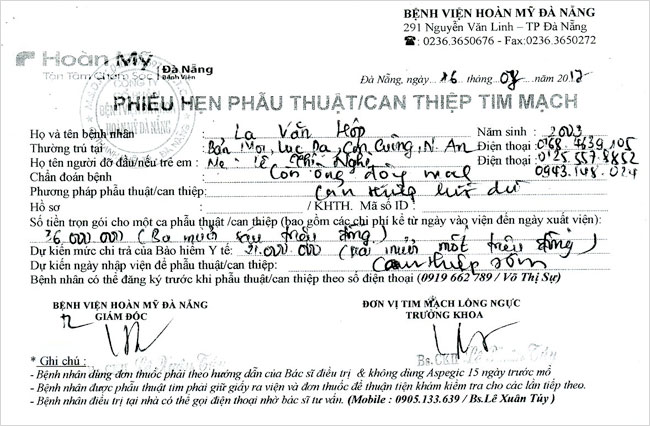 BỆNH VIỆN HOÀN MỸ ĐÀ NẴNG
291 Nguyễn Văn Linh – TP Đà Nẵng
☎: 0236.3650676 - Fax:0236.3650272
Hoàn Mỹ Đà Nẵng
Tận Tâm Chăm Sóc Bệnh Viện
Đà Nẵng, ngày 16 tháng 08 năm 2017
PHIẾU HẸN PHẪU THUẬT/CAN THIỆP TIM MẠCH
Họ và tên bệnh nhân La Văn Hốp Năm sinh 2003
Thường trú tại Bản Mọi, Lục Dạ, Con Cuông, N. An Điện thoại
Họ tên người đỡ đầu/nếu trẻ em: Mẹ Điện thoại
Chẩn đoán bệnh Còn ống động mạch 0943.148.024
Phương pháp phẫu thuật/can thiệp: Can thiệp bít dù
Hồ sơ / KHTH. Mã số ID
Số tiền trọn gói cho một ca phẫu thuật /can thiệp (bao gồm các chi phí kể từ ngày vào viện đến ngày xuất viện):
36.000.000 (Ba mươi sáu triệu đồng)
Dự kiến mức chi trả của Bảo hiểm Y tế: 21.000.000 (Hai mươi mốt triệu đồng)
Dự kiến ngày nhập viện để phẫu thuật/can thiệp: Can thiệp sớm
Bệnh nhân có thể đăng ký trước khi phẫu thuật/can thiệp theo số điện thoại (0919 662 789 / Võ Thị Sự)
BỆNH VIỆN HOÀN MỸ ĐÀ NẴNG
GIÁM ĐỐC
ĐƠN VỊ TIM MẠCH LỒNG NGỰC
TRƯỞNG KHOA
Bs.CKII Lê Xuân Túy
* Ghi chú :
- Bệnh nhân dùng đơn thuốc phải theo hướng dẫn của Bác sĩ điều trị & không dùng Aspegic 15 ngày trước mổ
- Bệnh nhân được phẫu thuật tim phải giữ giấy ra viện và đơn thuốc để thuận tiện khám kiểm tra cho các lần tiếp theo.
- Bệnh nhân điều trị tại nhà có thể gọi điện thoại nhờ bác sĩ tư vấn. (Mobile : 0905.133.639 / Bs.Lê Xuân Túy )